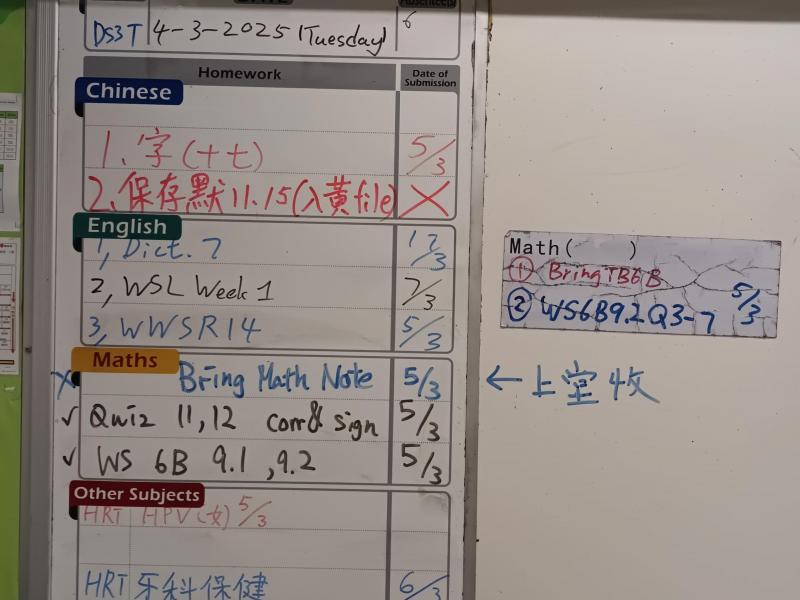 DS3T 4-3-2025 (Tuesday) 6
Homework Date of Submission
Chinese
1. 字(十七) 5/3
2. 保存默11.15(入黄file) X
English
1, Dict. 7 12/3
2, WSL Week 1 7/3
3, WWSR14 5/3
Maths
x Bring Math Note 5/3 ←上堂收
✓ Quiz 11,12 corr& sign 5/3
✓ WS 6B 9.1 ,9.2 5/3
Other Subjects
HRT HPV(女) 5/3
HRT 牙科保健 6/3
Math( )
① Bring TB6B
② WS6B9.2 Q3-7 5/3